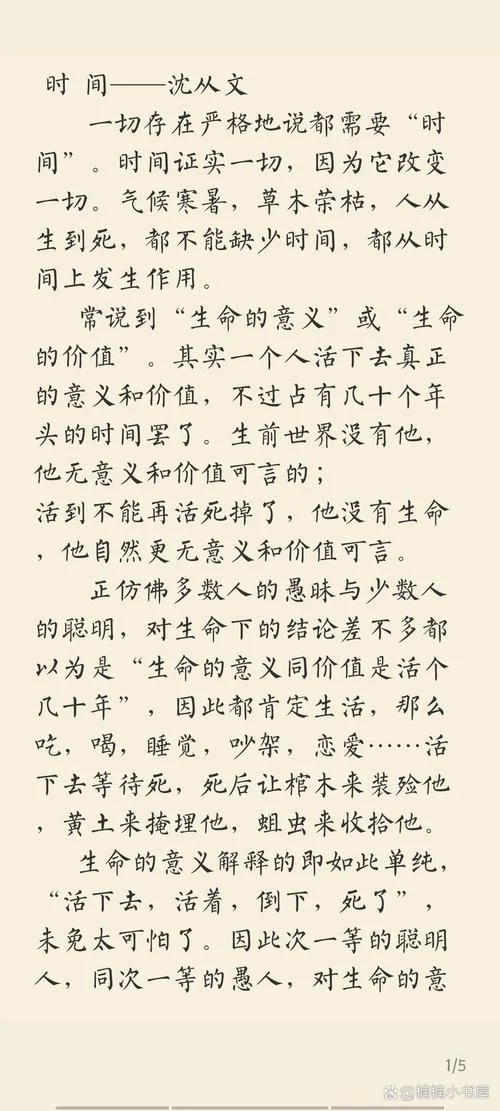 时 间——沈从文
一切存在严格地说都需要“时
间”。时间证实一切，因为它改变
一切。气候寒暑，草木荣枯，人从
生到死，都不能缺少时间，都从时
间上发生作用。
常说到“生命的意义”或“生命
的价值”。其实一个人活下去真正
的意义和价值，不过占有几十个年
头的时间罢了。生前世界没有他，
他无意义和价值可言的；
活到不能再活死掉了，他没有生命
，他自然更无意义和价值可言。
正仿佛多数人的愚昧与少数人
的聪明，对生命下的结论差不多都
以为是“生命的意义同价值是活个
几十年”，因此都肯定生活，那么
吃，喝，睡觉，吵架，恋爱……活
下去等待死，死后让棺木来装殓他
，黄土来掩埋他，蛆虫来收拾他。
生命的意义解释的即如此单纯，
“活下去，活着，倒下，死了”，
未免太可怕了。因此次一等的聪明
人，同次一等的愚人，对生命的意
1/5
楠楠小书屋